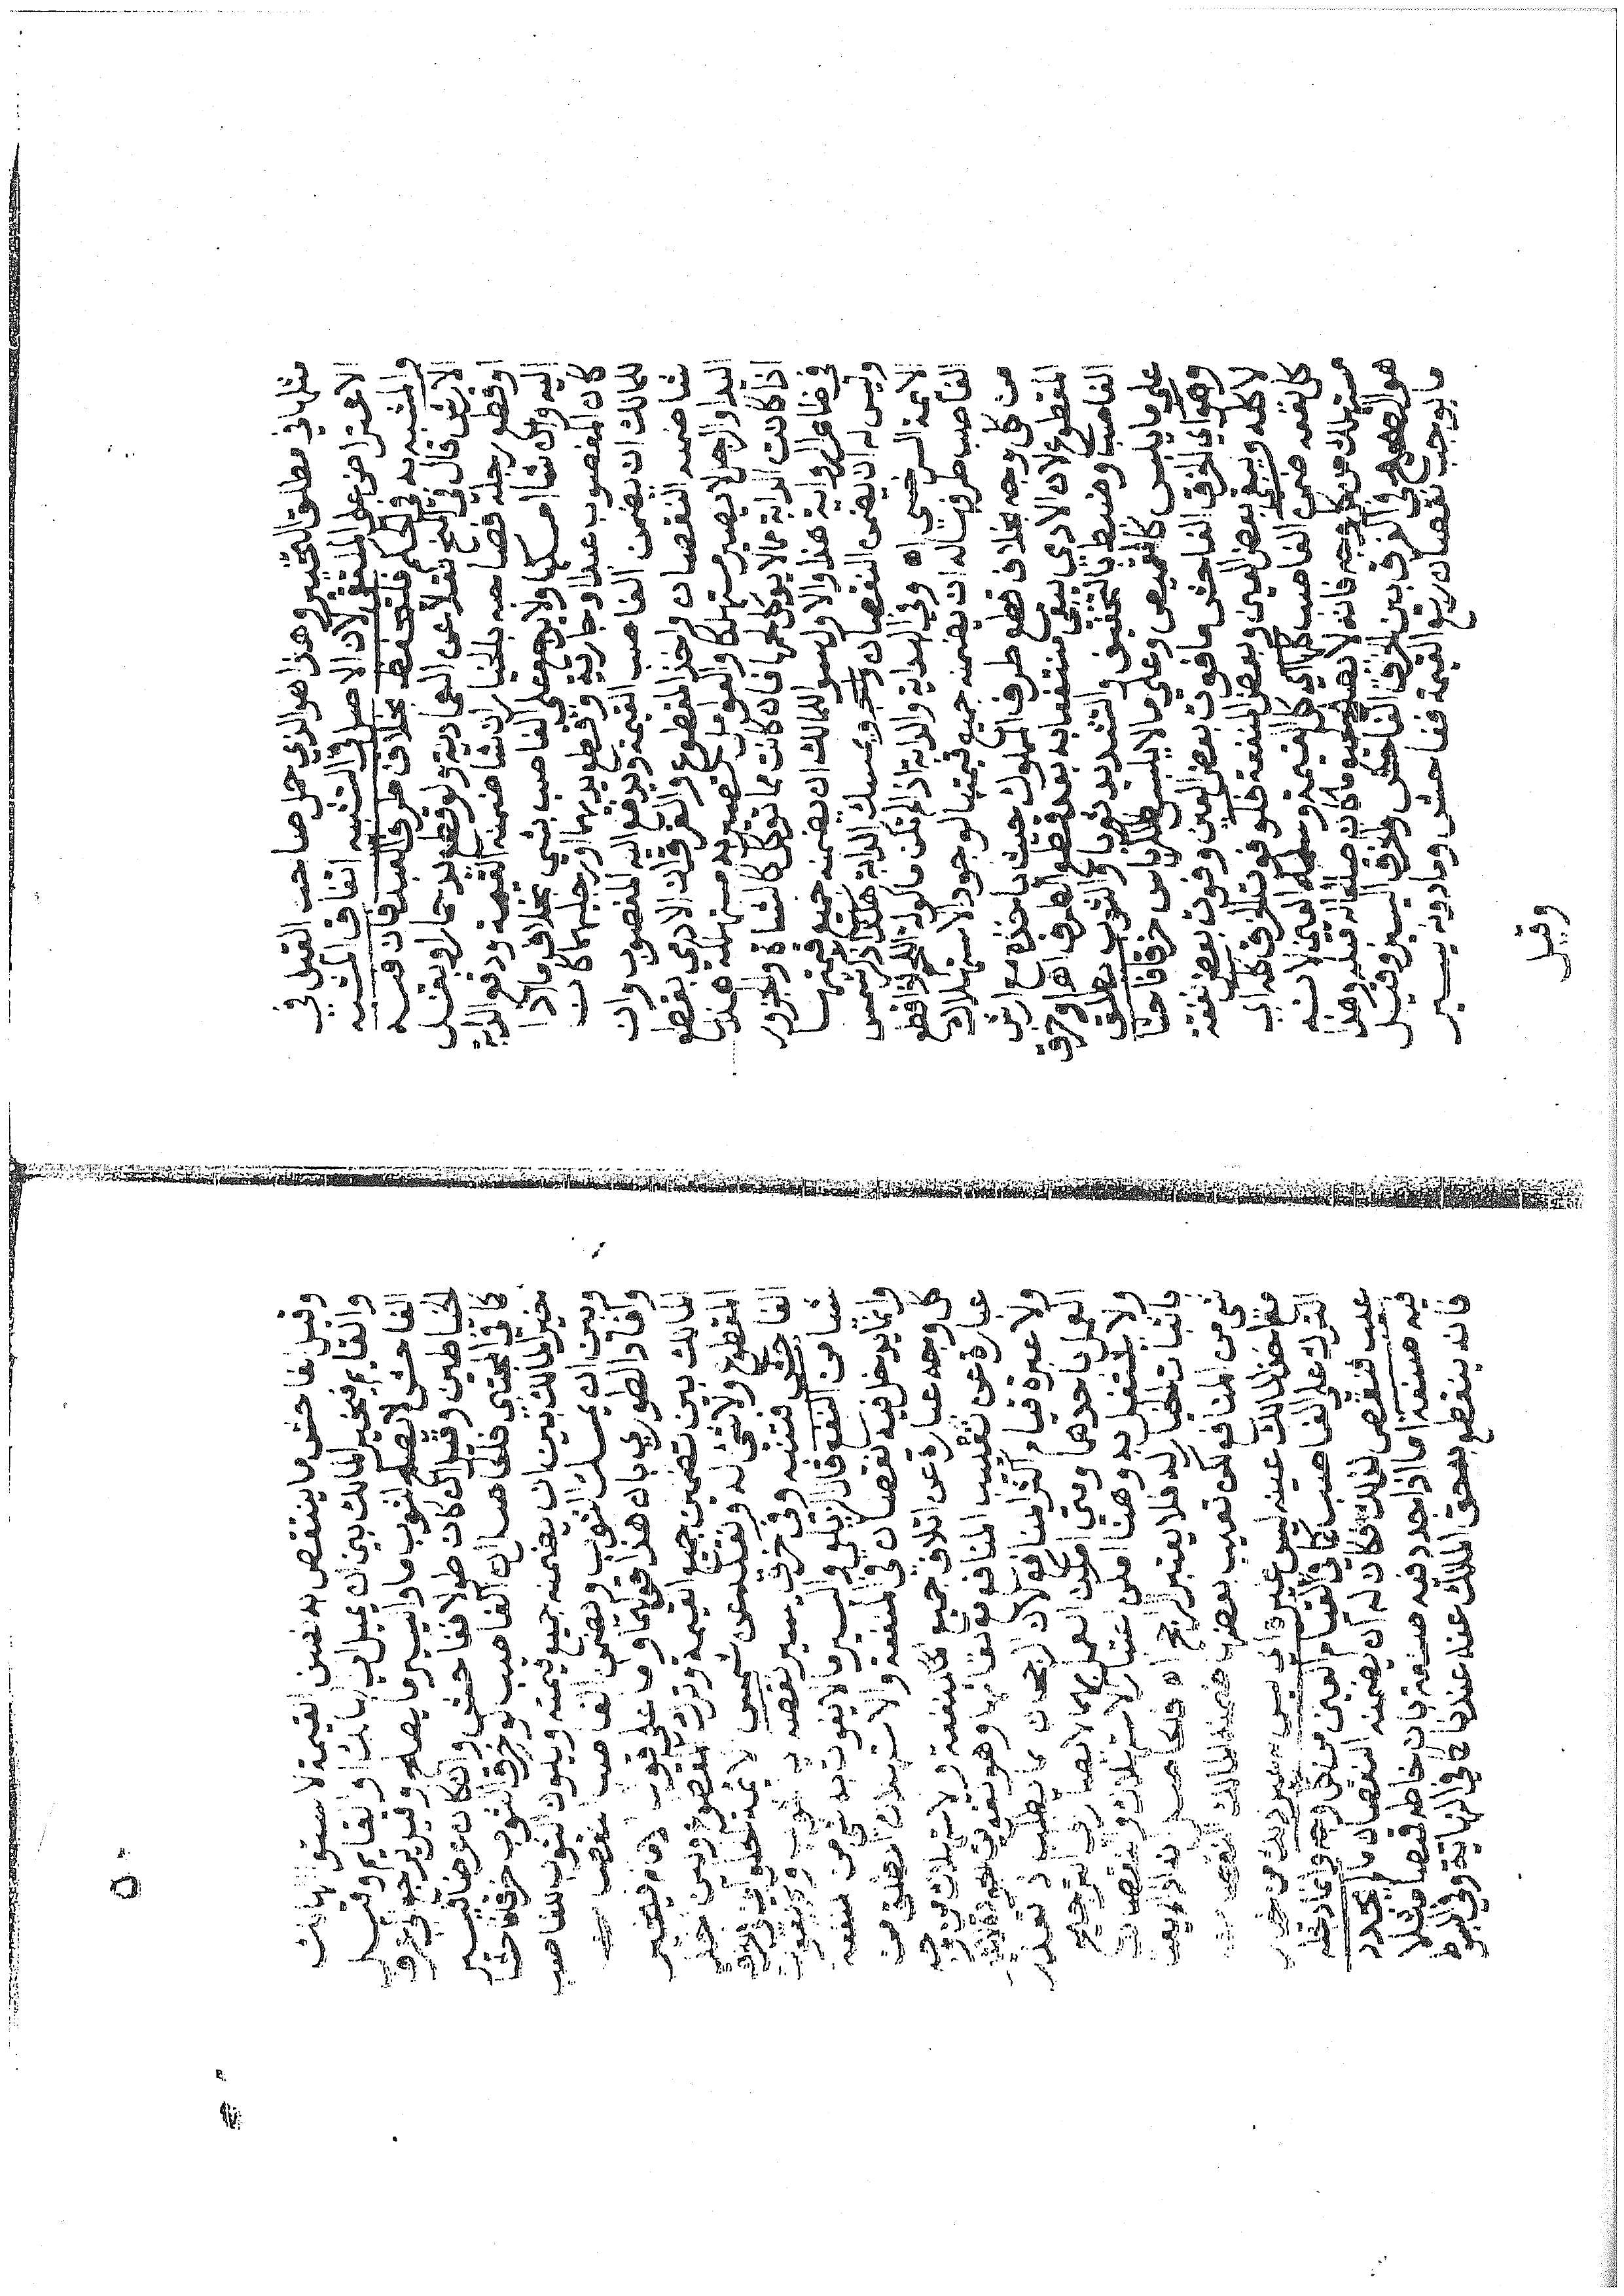 مثلها في مطلق التخيير وهذا هو الذي حمل صاحب القيل في
الاعتراض على الملتقى لان الاصل في التشبيه اتفاق المشبه
والمشبه به في الحكم فليتحفظ بخلاف طرف العبد فان فيه
الارش قال في المنح نقلا عن العمادية ولو قطع يد حمار او بغل
او قطع رجله فصاحبه بالخيار ان شا ضمنه القيمة ودفع الدابة
اليه وان شا امسكها ولا يرجع على الغاصب بشي بخلاف ما اذا
كان المغصوب عبدا او جارية وقطع يديهما او رجليهما كان
للمالك ان يضمن الغاصب القيمة ويدفع اليه المغصوب وان
شا ضمنه النقصان واخذ المقطوع والفرق ان الادمي بقطع
اليد او الرجل لا يصير مستهلكا والعوامل تصير به مستهلكة هذا
اذا كانت الدابة مما لا يوكل لحمها فان كانت مما توكل كالشاة والجزور
في ظاهر الرواية هذا والاول سوا للمالك ان يضمنه جميع قيمتها
وليس له ان يضمن النقصان ويمسك الدابة هكذا ذكر شمس
الائمة السرخسي اه وفي الهداية والدابة اذا لم تكن ماكولة اللحم فقطع
الغاصب طرفها له ان يضمنه جميع قيمتها لوجود الاستهلاك
من كل وجه بخلاف قطع طرف المملوك حيث ياخذه مع ارش
المقطوع لان الادمي يبقى منتفعا به بعد قطع الطرف اه او خرق
الغاصب وضبط بالتخفيف والتشديد ثوبا والثوب يطلق
على ما يلبس كالقميص وعلى ما لا يلبس كالكرباس خرقا فاحشا
وهو اي الخرق الفاحش ما فوت بعض العين وفوت بعض نفعه
لا كله ويبقى بعض العين وبعض المنفعة فلو فوت الخرق كله اي
كل نفعه ضمن الغاصب كلها اي كل القيمة وسلمه العين لانه
مستهلك من كل وجه فانه لا يصلح لجميع ما كان صالحا له قبله وهذا
هو الصحيح في الفرق بين الخرق الفاحش والخرق اليسير وقيل
ما يوجب نقصان ربع القيمة ففاحش وما دونه يسير
وقيل
٥٠
وقيل الفاحش ما ينتقص به نصف القيمة لاستوا الهالك
والقايم فيخير المالك بين ان يميل الي الهالك او القايم وقيل
الفاحش لا يصلح لثوب ما واليسير ما يصلح وقيل يرجع في الخرق
للخياطين وقيل ان كان طولا ففاحش وان كان عرضا فيسير
كما في المجتبي فللحاصل ان الغاصب لو خرق الثوب خرقا فاحشا
خير المالك بين ان يضمنه جميع قيمته ويكون الثوب للغاصب
وبين ان يمسك الثوب ويضمن الغاصب النقصان
وافاد الطوري بان هذا قولهما واما على قول الامام فيخير
المالك بين تضمين جميع القيمة وترك المغصوب وبين اخذ
المقطوع ولا شي له ونقله عن شمس الائمة الحلواني في الخرق
الفاحش فتنبه وفي خرق يسير نقصه به الثوب ولم يفوت
شيا من النفع قال الزيلعي واليسير ما لا يفوت به شي من منفعة
وانما يدخل فيه نقصان في المنفعة والاستهلاك المطلق من
كل وجه عبارة عن اتلاف جميع المنفعة والاستهلاك من وجه
عبارة عن تعييب المنافع
ولا عبرة قيام اكثر المنافع لان الرجحان يطلب اذا تعذر
العمل باحدهما ومتي امكن العمل بهما لا يصار الى الترجيح
ولا يشتغل به وهنا امكن اعتبار الاستهلاك والنقصان
باثبات الخيار له فلا يعتبر الراجح اه والحاصل
شي من المنافع لكن تعيب بعضها ضمنه المالك النقصان
مع اخذ المالك عينه ليس غير
الترك على الغاصب كما في القيام العين من كل وجه وانما دخله
عيب فنقص لذلك فكان له ان يضمنه النقصان ما لم يجدد
فيه صنعة اما اذا جدد فيه صنعة بان خاطه قميصا مثلا
فانه ينقطع به حق المالك عنه عندنا كما في النهاية وفي المبسوط